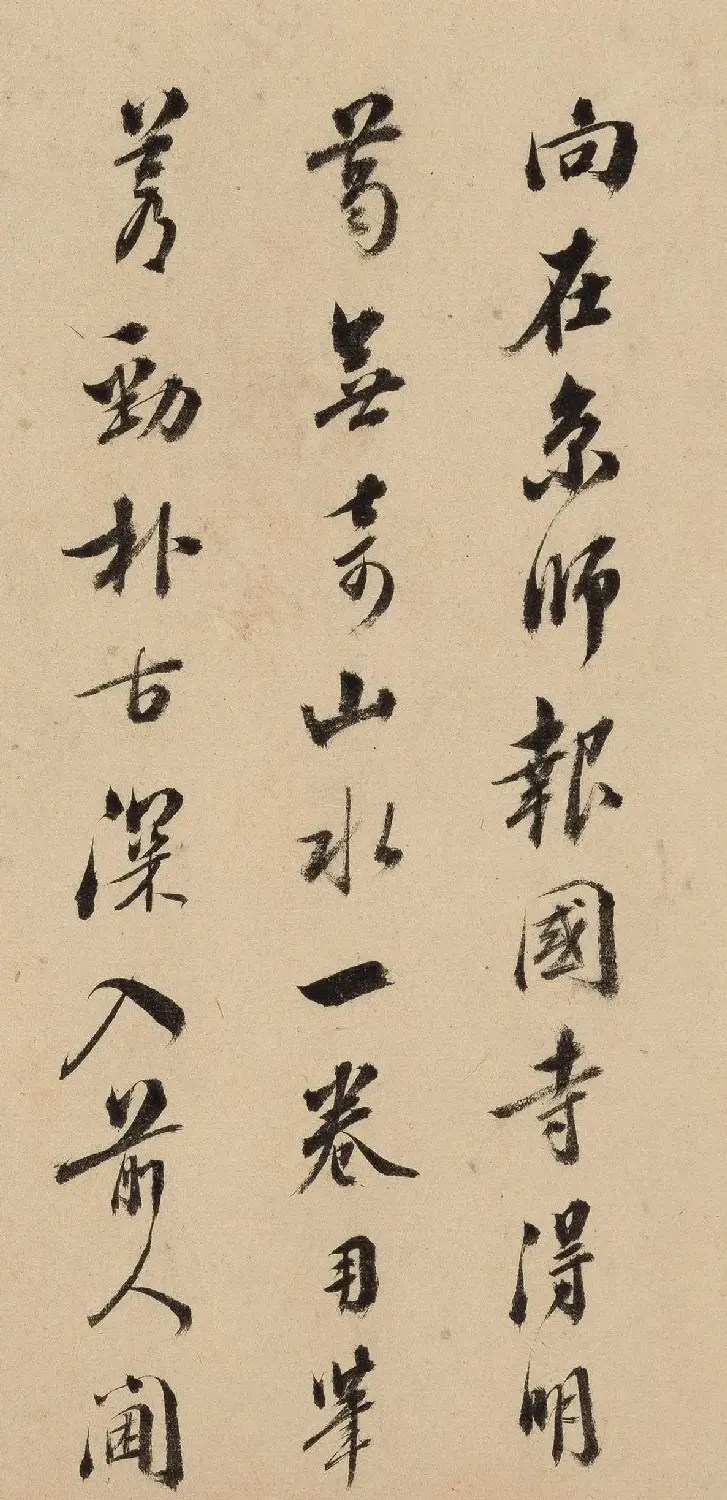 向在京師報國寺得明
葛無奇山水一卷用筆
蒼勁朴古深入前人閫